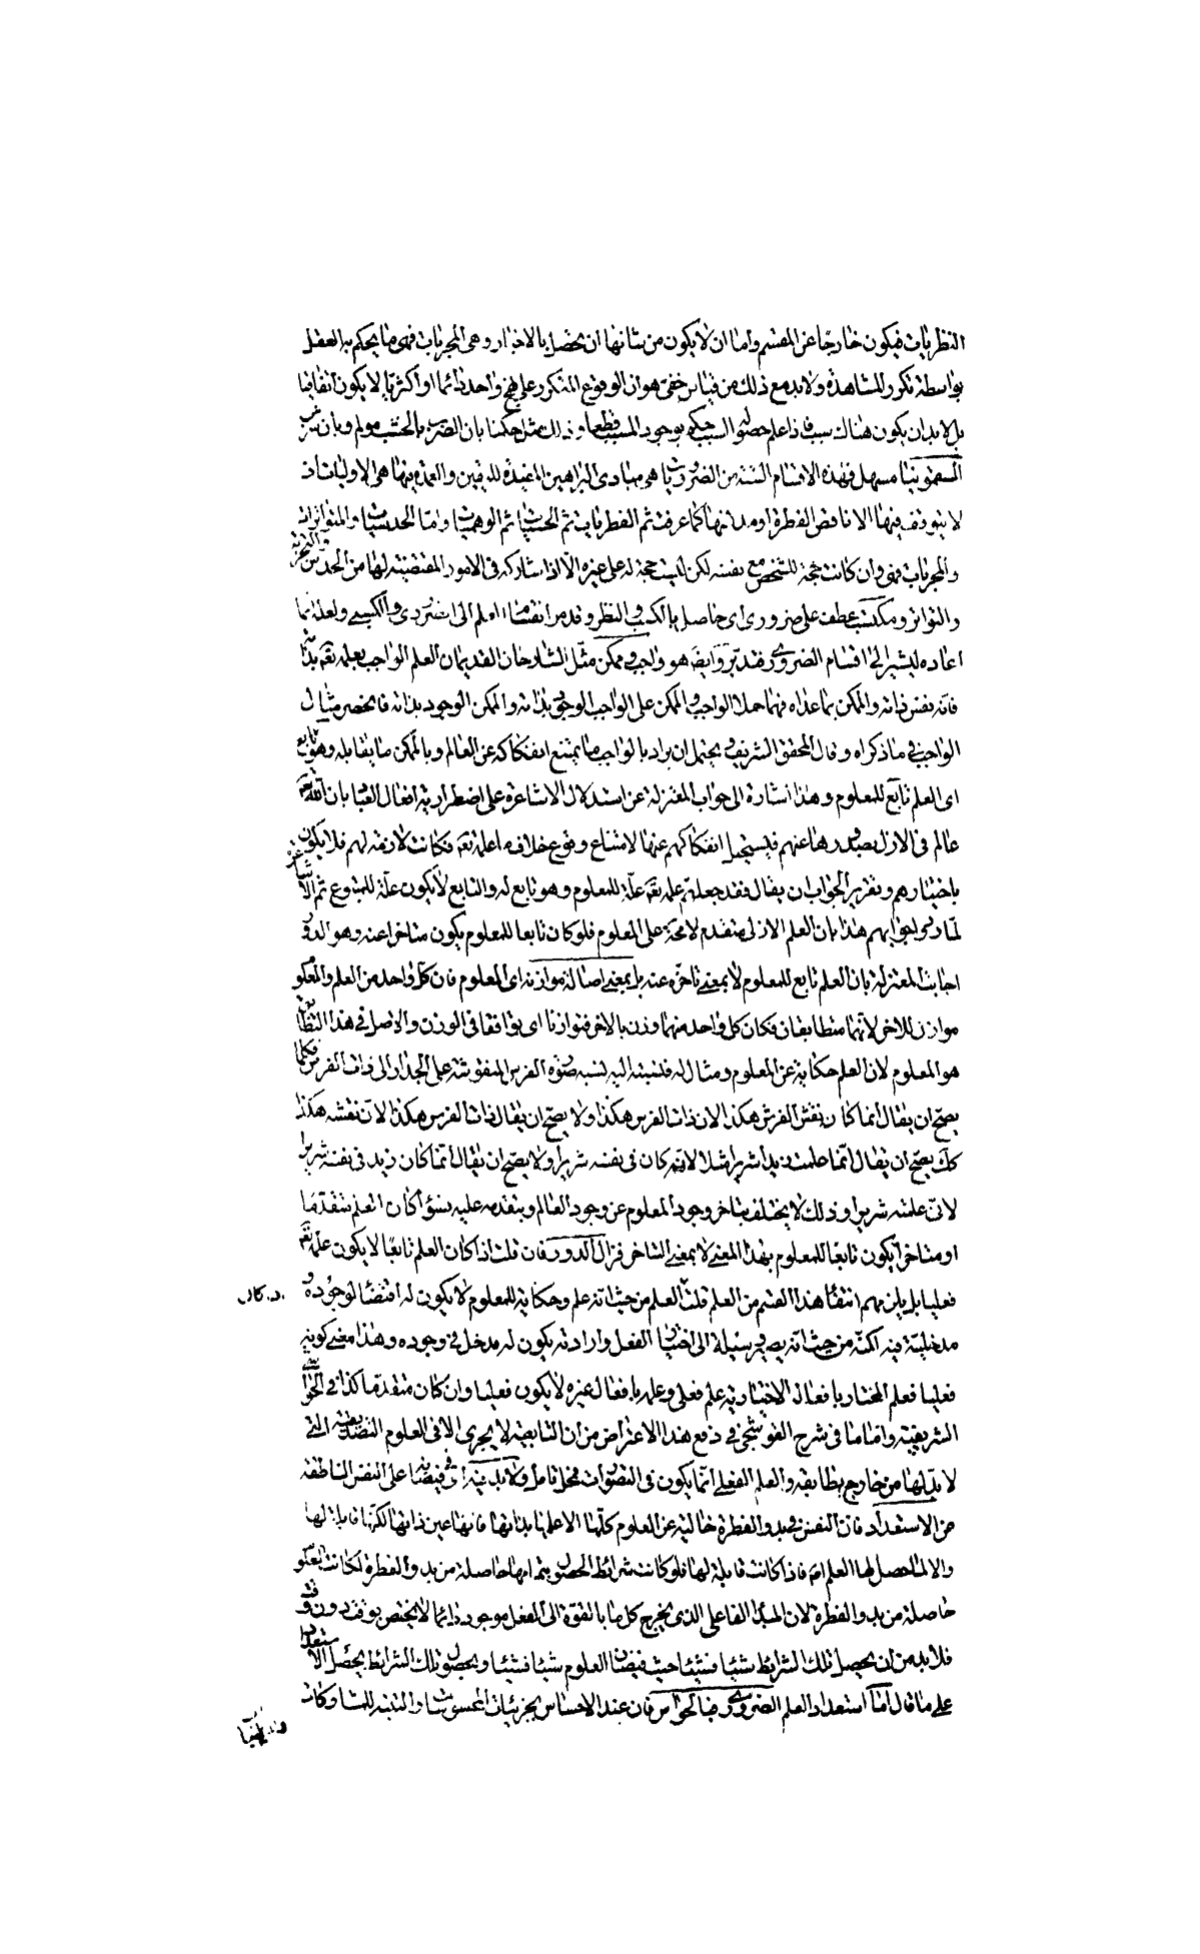 النظريات فيكون خارجًا عن المقسم واما ان لا يكون من شانها ان يحصل بالاخبار وهى المجربات فهى ما يحكم به العقل
بواسطة تكرر المشاهدة ولا بد مع ذلك من قياس خفى هو ان الوقوع المتكرر على نهج واحد دائما او اكثريا لا يكون اتفاقيا
بل لا بد ان يكون هناك سبب فاذا علم حصول السبب حكم بوجود المسبب قطعا وذلك مثل حكمنا بان الضرب بالخشب مولم وبان شرب
السقمونيا مسهل فهذه الاقسام الستة من الضروريات هى مبادى البراهين المفيدة لليقين والعمدة منها هى الاوليات اذ
لا يتوقف فيها الا ناقص الفطرة اومد انها كما عرفت ثم الفطريات ثم الحسيات ثم الوهميات واما الحدسيات والمتواترات
والمجربات فهى وان كانت حجة للشخص مع نفسه لكن ليست حجة له على غيره الا اذا شاركه فى الامور المقتضية لها من الحدس والتجربة
والتواتر ومكتسب عطف على ضرورى اى حاصل بالكسب والنظر وقد مر انقسام العلم الى الضرورى والكسبى ولعله انما
اعاده ليشير الى اقسام الضرورى وقد تبرّ وايضًا هو واجب وممكن مثّل الشارحان القديمان العلم الواجب بعلمه تعه بذاته
فانه نفس ذاته والممكن بما عداه فهما حملا الواجب والممكن على الواجب الوجود بذاته والممكن الوجود بذاته فانحصر مثال
الواجب فى ما ذكراه وقال المحقق الشريف يحتمل ان يراد بالواجب ما يمتنع انفكاكه عن العالم وبالممكن ما يقابله وهو تابع
اى العلم تابع للمعلوم وهذا اشارة الى جواب المعتزلة عن استدلال الاشاعرة على اضطرارية افعال العباد بان الله تعه
عالم فى الازل بصدورها عنهم فيستحيل انفكاكهم عنها لامتناع وقوع خلاف ما علمه تعه فكانت لازمة لهم فلا يكون
باختيارهم وتقرير الجواب ان يقال فقد جعلتم علمه تعه علّة للمعلوم وهو تابع له والتابع لا يكون علّة للمتبوع ثم الاشاعرة
لما ردوا جوابهم هذا بان العلم الازلى متقدم لا محة على المعلوم فلو كان تابعا للمعلوم يكون متاخرا عنه وهو الدور
اجابت المعتزلة بان العلم تابع للمعلوم لا بمعنى تاخره عنه بل بمعنى اصالة موازنه اى المعلوم فان كل واحد من العلم والمعلوم
موازن للاخر لانهما متطابقان فكان كل واحد منهما وزن بالاخر فتوازنا اى توافقا فى الوزن والاصل فى هذا التطابق
هو المعلوم لان العلم حكاية عن المعلوم ومثال له فنسبته اليه نسبة صورة الفرس المنقوشة على الجدار الى ذات الفرس فكما
يصح ان يقال انما كان نقش الفرس هكذا لان ذات الفرس هكذا ولا يصح ان يقال ذات الفرس هكذا لان نقشه هكذا
كك يصح ان يقال انما علمت زيدا شريرا مثلا لانه كان فى نفسه شريرا ولا يصح ان يقال انما كان زيد فى نفسه شريرا
لانى علمته شريرا وذلك لا يختلف بتاخر وجود المعلوم عن وجود العالم وبتقدمه عليه سوا كان العلم متقدّمًا
او متاخرا يكون تابعًا للمعلوم بهذا المعنى لا بمعنى التاخر فزال الدور فان قلت اذا كان العلم تابعًا لا يكون علمه تعه
فعليا بل يلزمهم انتفا هذا القسم من العلم قلت العلم من حيث انه علم وحكاية للمعلوم لا يكون له اقتضا لوجوده و
مدخلية فيه لكنه من حيث انه يصير وسيلة الى اختيار الفعل وارادته يكون له مدخل فى وجوده وهذا معنى كونه
فعليا فعلم المختار بافعاله الاختيارية علم فعلى وعلمه بافعال غيره لا يكون فعليا وان كان متقدما كذا فى الحواشى
الشريفية واما ما فى شرح القوشجى فى دفع هذا الاعتراض من ان التابعية لا يجرى الا فى العلوم التصديقية التى
لا بد لها من خارج يطابقه والعلم الفعلى انما يكون فى التصورات فمحل تامل ولا بد فيه اى فى فيضانه على النفس الناطقة
من الاستعداد فان النفس فى بدو الفطرة خالية عن العلوم كلها الا علمها بذاتها فانها عين ذاتها لكنها قابلة لها
والا لما حصل لها العلم اصم فاذا كانت قابلة لها فلو كانت شرايط الحصول بتمامها حاصلة من بدو الفطرة لكانت العلوم
حاصلة من بدو الفطرة لان المبدا الفاعلى الذى يخرج كل ما بالقوة الى الفعل موجود دائما لا يختص بوقت دون وقت
فلا بد من ان يحصل تلك الشرايط شيئا فشيئا حيث فيضان العلوم شيئا فشيئا وبحصول تلك الشرائط يحصل الاستعداد
على ما قال اما استعداد العلم الضرورى فبالحواس فان عند الاحساس بجزئيات المحسوسات والتنبه للمشاركات